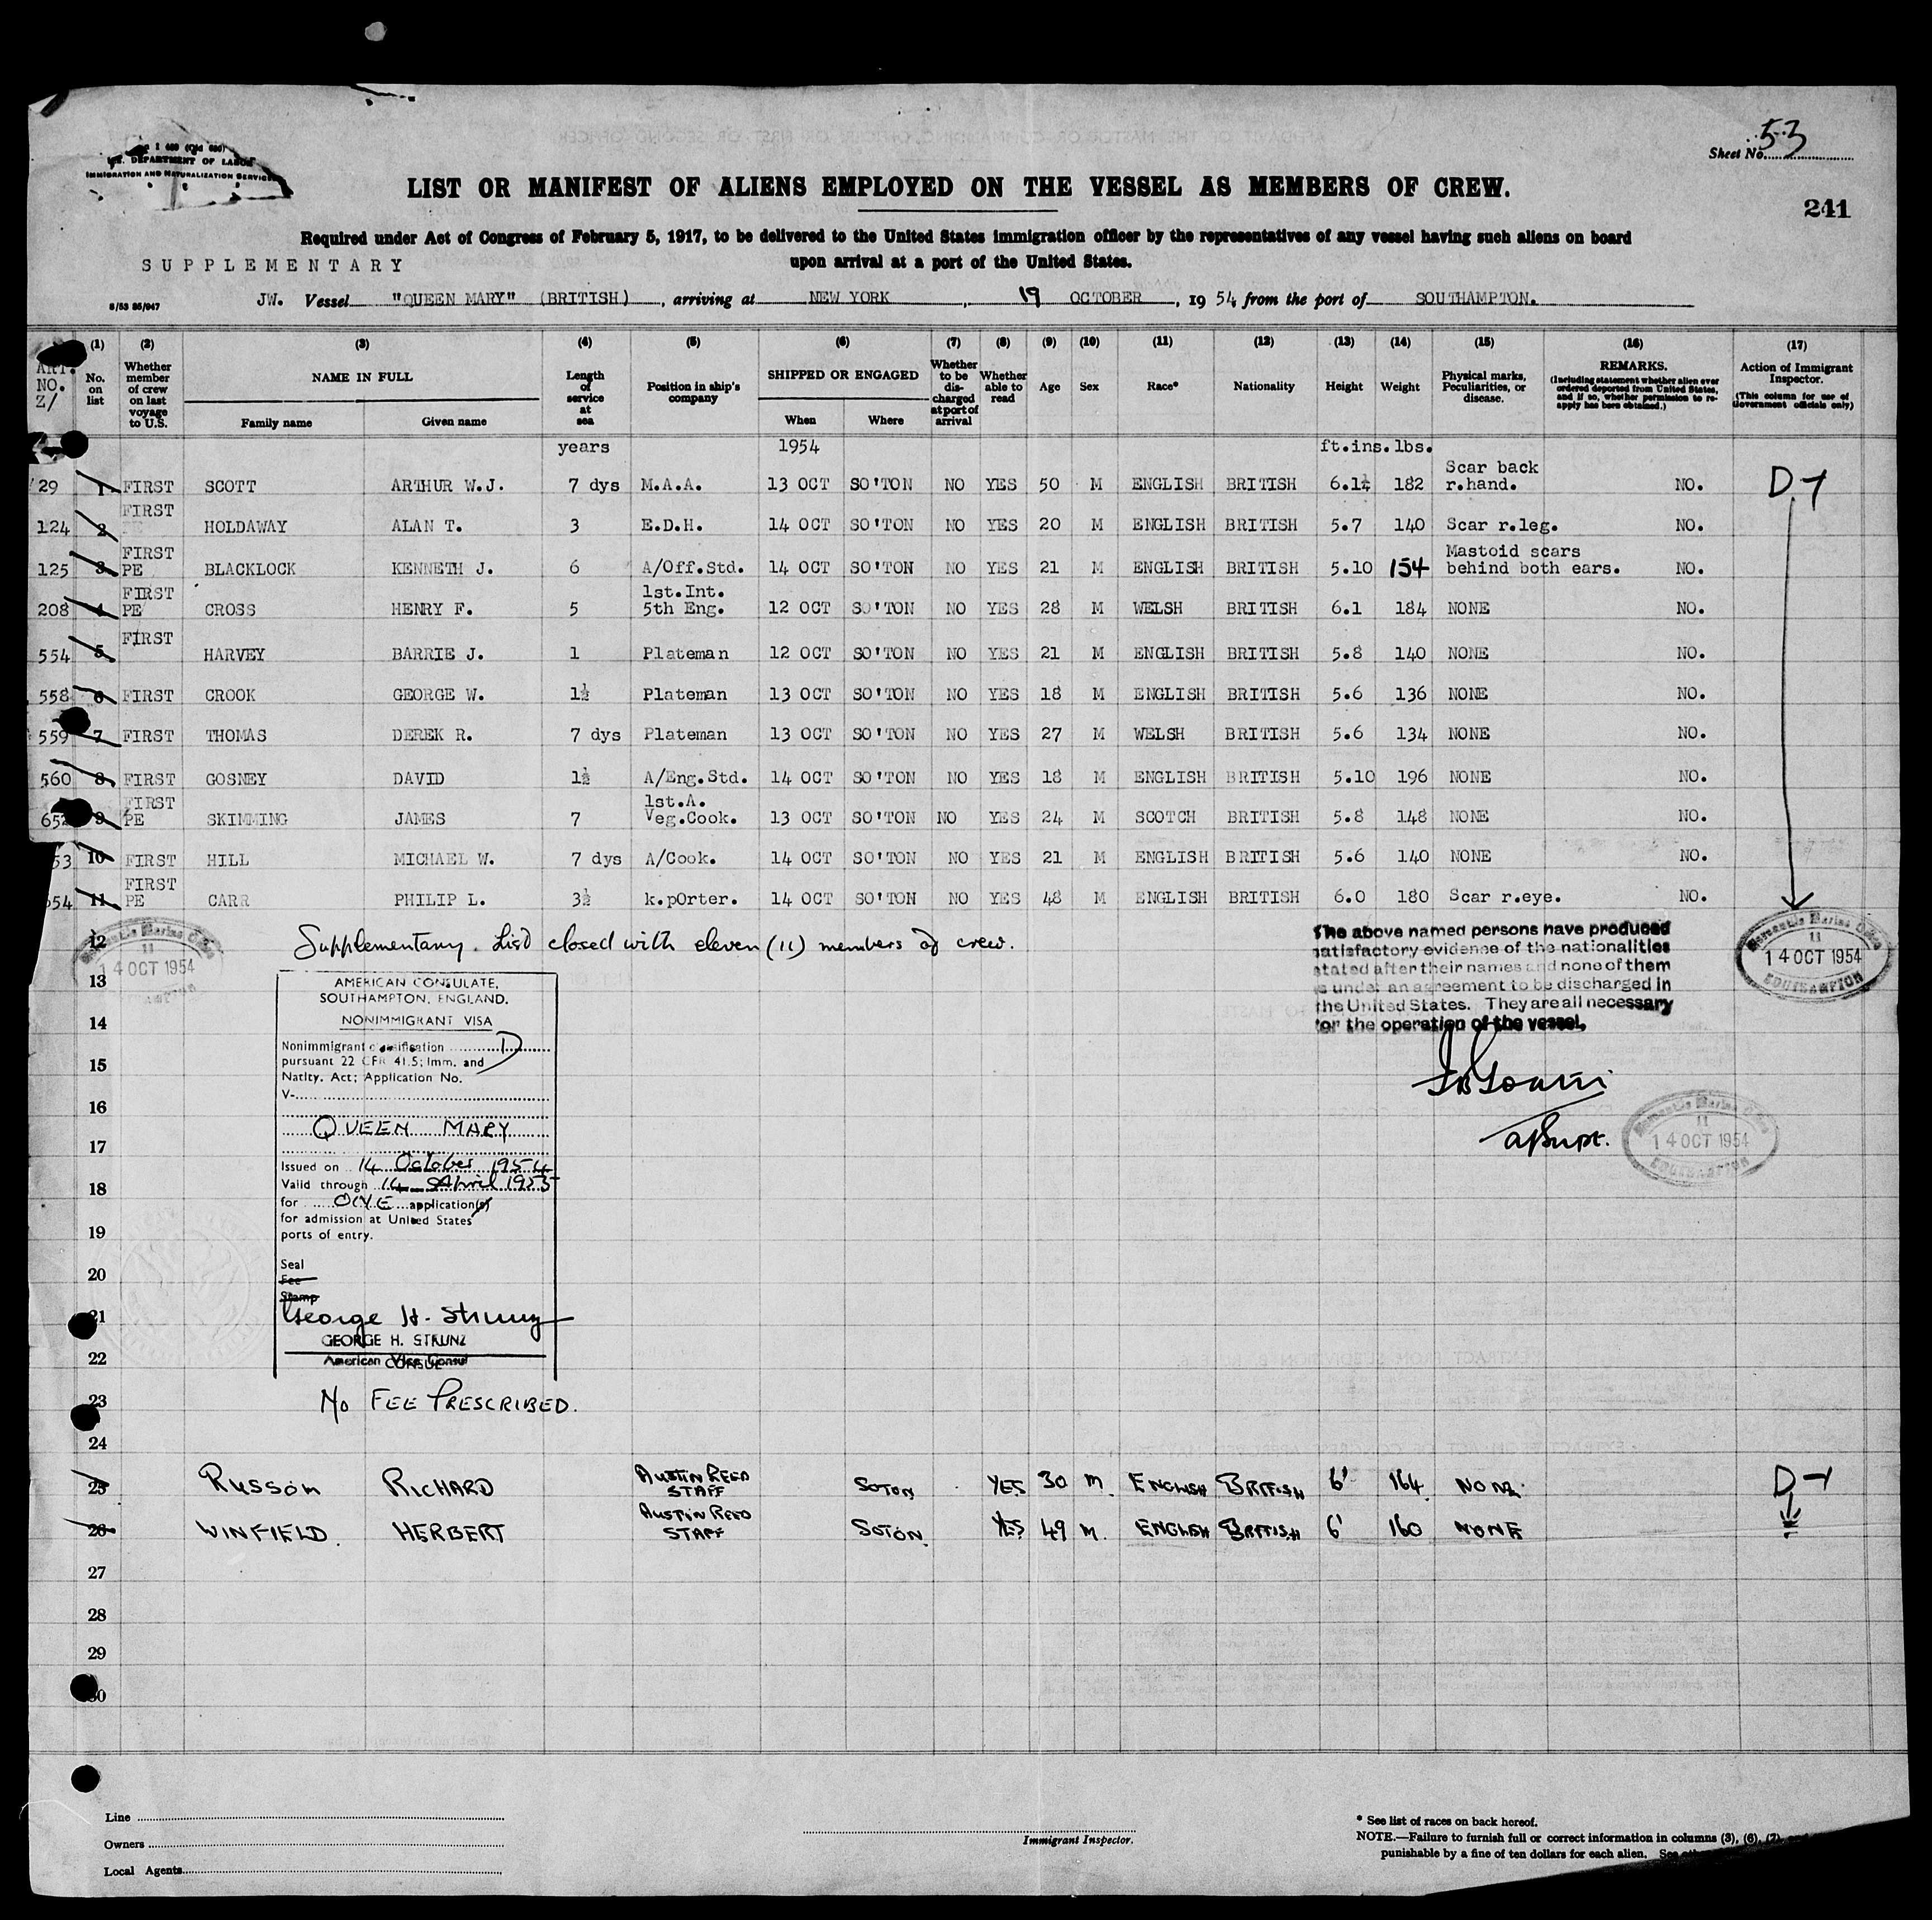 Sheet No. 53
I 489 (Old 680)
DEPARTMENT OF LABOR
IMMIGRATION AND NATURALIZATION SERVICE
LIST OR MANIFEST OF ALIENS EMPLOYED ON THE VESSEL AS MEMBERS OF CREW.
241
Required under Act of Congress of February 5, 1917, to be delivered to the United States immigration officer by the representatives of any vessel having such aliens on board
upon arrival at a port of the United States.
SUPPLEMENTARY
8/53 85/947
JW. Vessel "QUEEN MARY" (BRITISH), arriving at NEW YORK, 19 OCTOBER, 1954 from the port of SOUTHAMPTON.
ART. NO. Z/
(1) No. on list
(2) Whether member of crew on last voyage to U.S.
(3) NAME IN FULL Family name Given name
(4) Length of service at sea
(5) Position in ship's company
(6) SHIPPED OR ENGAGED When Where
(7) Whether to be discharged at port of arrival
(8) Whether able to read
(9) Age
(10) Sex
(11) Race*
(12) Nationality
(13) Height
(14) Weight
(15) Physical marks, Peculiarities, or disease.
(16) REMARKS. (Including statement whether alien ever ordered deported from United States, and if so, whether permission to re-apply has been obtained.)
(17) Action of Immigrant Inspector. (This column for use of Government officials only)
years 1954 ft.ins. lbs.
29 1 FIRST SCOTT ARTHUR W.J. 7 dys M.A.A. 13 OCT SO'TON NO YES 50 M ENGLISH BRITISH 6.1½ 182 Scar back r.hand. NO. D-1
124 2 FIRST HOLDAWAY ALAN T. 3 E.D.H. 14 OCT SO'TON NO YES 20 M ENGLISH BRITISH 5.7 140 Scar r.leg. NO.
125 3 FIRST PE BLACKLOCK KENNETH J. 6 A/Off.Std. 14 OCT SO'TON NO YES 21 M ENGLISH BRITISH 5.10 154 Mastoid scars behind both ears. NO.
208 4 FIRST PE CROSS HENRY F. 5 1st.Int. 5th Eng. 12 OCT SO'TON NO YES 28 M WELSH BRITISH 6.1 184 NONE NO.
554 5 FIRST HARVEY BARRIE J. 1 Plateman 12 OCT SO'TON NO YES 21 M ENGLISH BRITISH 5.8 140 NONE NO.
558 6 FIRST CROOK GEORGE W. 1½ Plateman 13 OCT SO'TON NO YES 18 M ENGLISH BRITISH 5.6 136 NONE NO.
559 7 FIRST THOMAS DEREK R. 7 dys Plateman 13 OCT SO'TON NO YES 27 M WELSH BRITISH 5.6 134 NONE NO.
560 8 FIRST GOSNEY DAVID 1½ A/Eng.Std. 14 OCT SO'TON NO YES 18 M ENGLISH BRITISH 5.10 196 NONE NO.
652 9 FIRST PE SKIMMING JAMES 7 1st.A. Veg.Cook. 13 OCT SO'TON NO YES 24 M SCOTCH BRITISH 5.8 148 NONE NO.
53 10 FIRST HILL MICHAEL W. 7 dys A/Cook. 14 OCT SO'TON NO YES 21 M ENGLISH BRITISH 5.6 140 NONE NO.
654 11 FIRST PE CARR PHILIP L. 3½ k.pOrter. 14 OCT SO'TON NO YES 48 M ENGLISH BRITISH 6.0 180 Scar r.eye. NO.
12 Supplementary List closed with eleven (11) members of crew.
Mercantile Marine Office
11
14 OCT 1954
SOUTHAMPTON
The above named persons have produced
satisfactory evidence of the nationalities
stated after their names and none of them
is under an agreement to be discharged in
the United States. They are all necessary
for the operation of the vessel.
Mercantile Marine Office
11
14 OCT 1954
SOUTHAMPTON
Mercantile Marine Office
11
14 OCT 1954
SOUTHAMPTON
13
14
15
16
17
18
19
20
21
22
23
24
AMERICAN CONSULATE,
SOUTHAMPTON, ENGLAND.
NONIMMIGRANT VISA
Nonimmigrant classification D
pursuant 22 CFR 41.5; Imm. and
Natlty. Act; Application No.
V-
QUEEN MARY
Issued on 14 October 1954
Valid through 14 April 1955
for ONE application(s)
for admission at United States
ports of entry.
Seal
Fee
Stamp
George H. Strunz
GEORGE H. STRUNZ
American Vice Consul
CONSUL
No FEE PRESCRIBED.
25 RUSSON RICHARD AUSTIN REED STAFF SOTON YES 30 M. ENGLISH BRITISH 6' 164 NONE D-1
26 WINFIELD. HERBERT AUSTIN REED STAFF SOTON. YES 49 M. ENGLISH BRITISH 6' 160 NONE
27
28
29
30
Line
Owners
Local Agents
Immigrant Inspector.
* See list of races on back hereof.
NOTE.—Failure to furnish full or correct information in columns (3), (6), (7)
punishable by a fine of ten dollars for each alien.